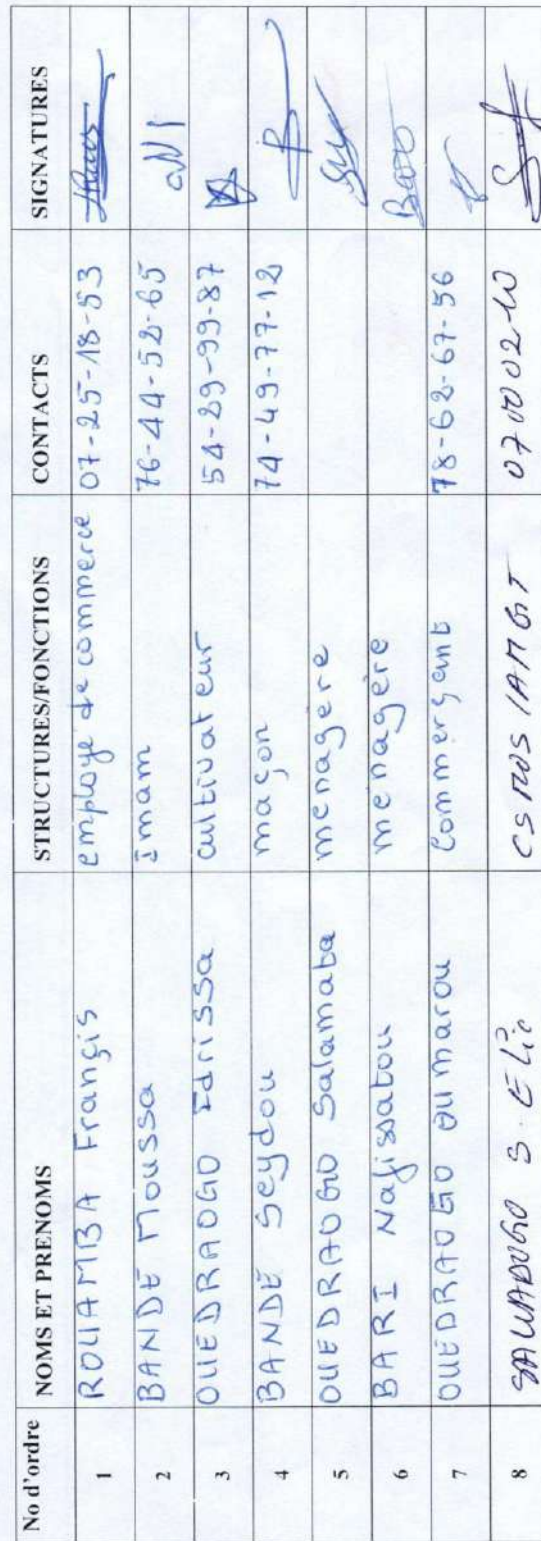 No d'ordre NOMS ET PRENOMS STRUCTURES/FONCTIONS CONTACTS SIGNATURES
1 ROUAMBA Françis employé de commerce 07-25-18-53
2 BANDE Moussa imam 76-44-52-65
3 OUEDRAOGO Idrissa cultivateur 54-29-99-87
4 BANDE Seydou maçon 74-49-77-12
5 OUEDRAOGO Salamata menagère
6 BARI Nafissatou menagère
7 OUEDRAOGO Oumarou Commerçant 78-62-67-56
8 SAWADOGO S. Elie